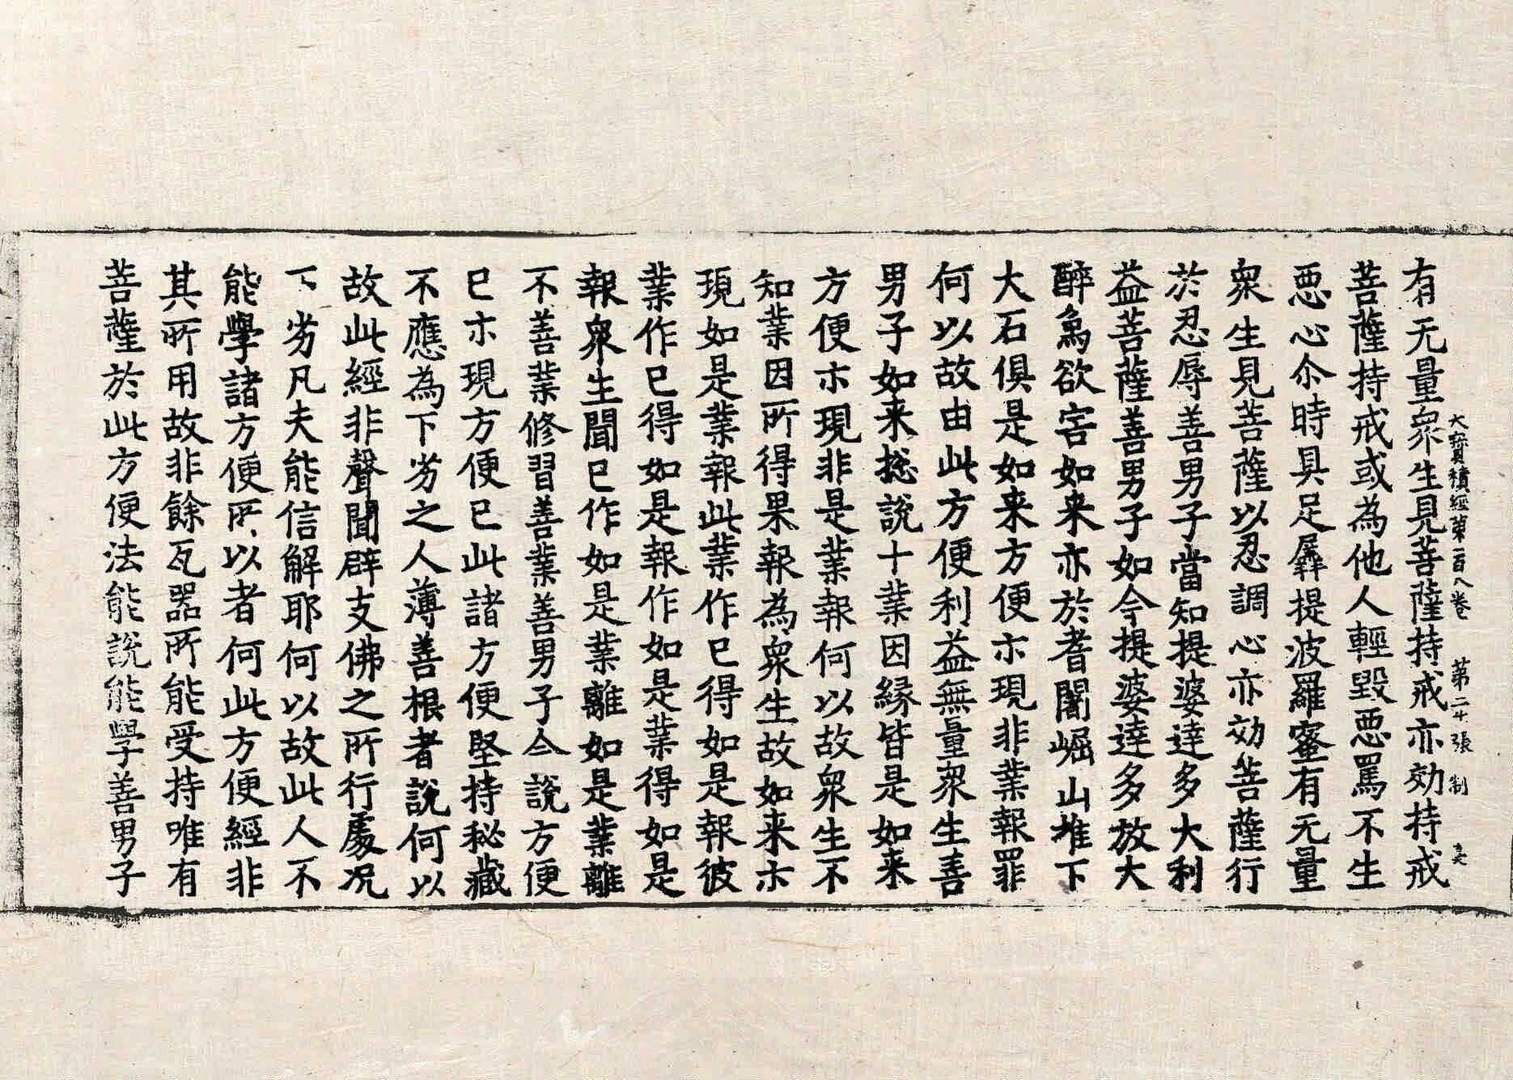 大寶積經第一百八卷　第二十張　制
有无量衆生見菩薩持戒亦効持戒
菩薩持戒或為他人輕毀惡罵不生
惡心尒時具足羼提波羅蜜有无量
衆生見菩薩以忍調心亦効菩薩行
於忍辱善男子當知提婆達多大利
益菩薩善男子如今提婆達多放大
醉象欲害如来亦於耆闍崛山堆下
大石俱是如来方便示現非業報罪
何以故由此方便利益無量衆生善
男子如来捴說十業因緣皆是如来
方便示現非是業報何以故衆生不
知業因所得果報為衆生故如来示
現如是業報此業作已得如是報彼
業作已得如是報作如是業得如是
報衆生聞已作如是業離如是業離
不善業修習善業善男子今說方便
已示現方便已此諸方便堅持秘藏
不應為下劣之人薄善根者說何以
故此經非聲聞辟支佛之所行處况
下劣凡夫能信解耶何以故此人不
能學諸方便所以者何此方便經非
其所用故非餘瓦器所能受持唯有
菩薩於此方便法能說能學善男子